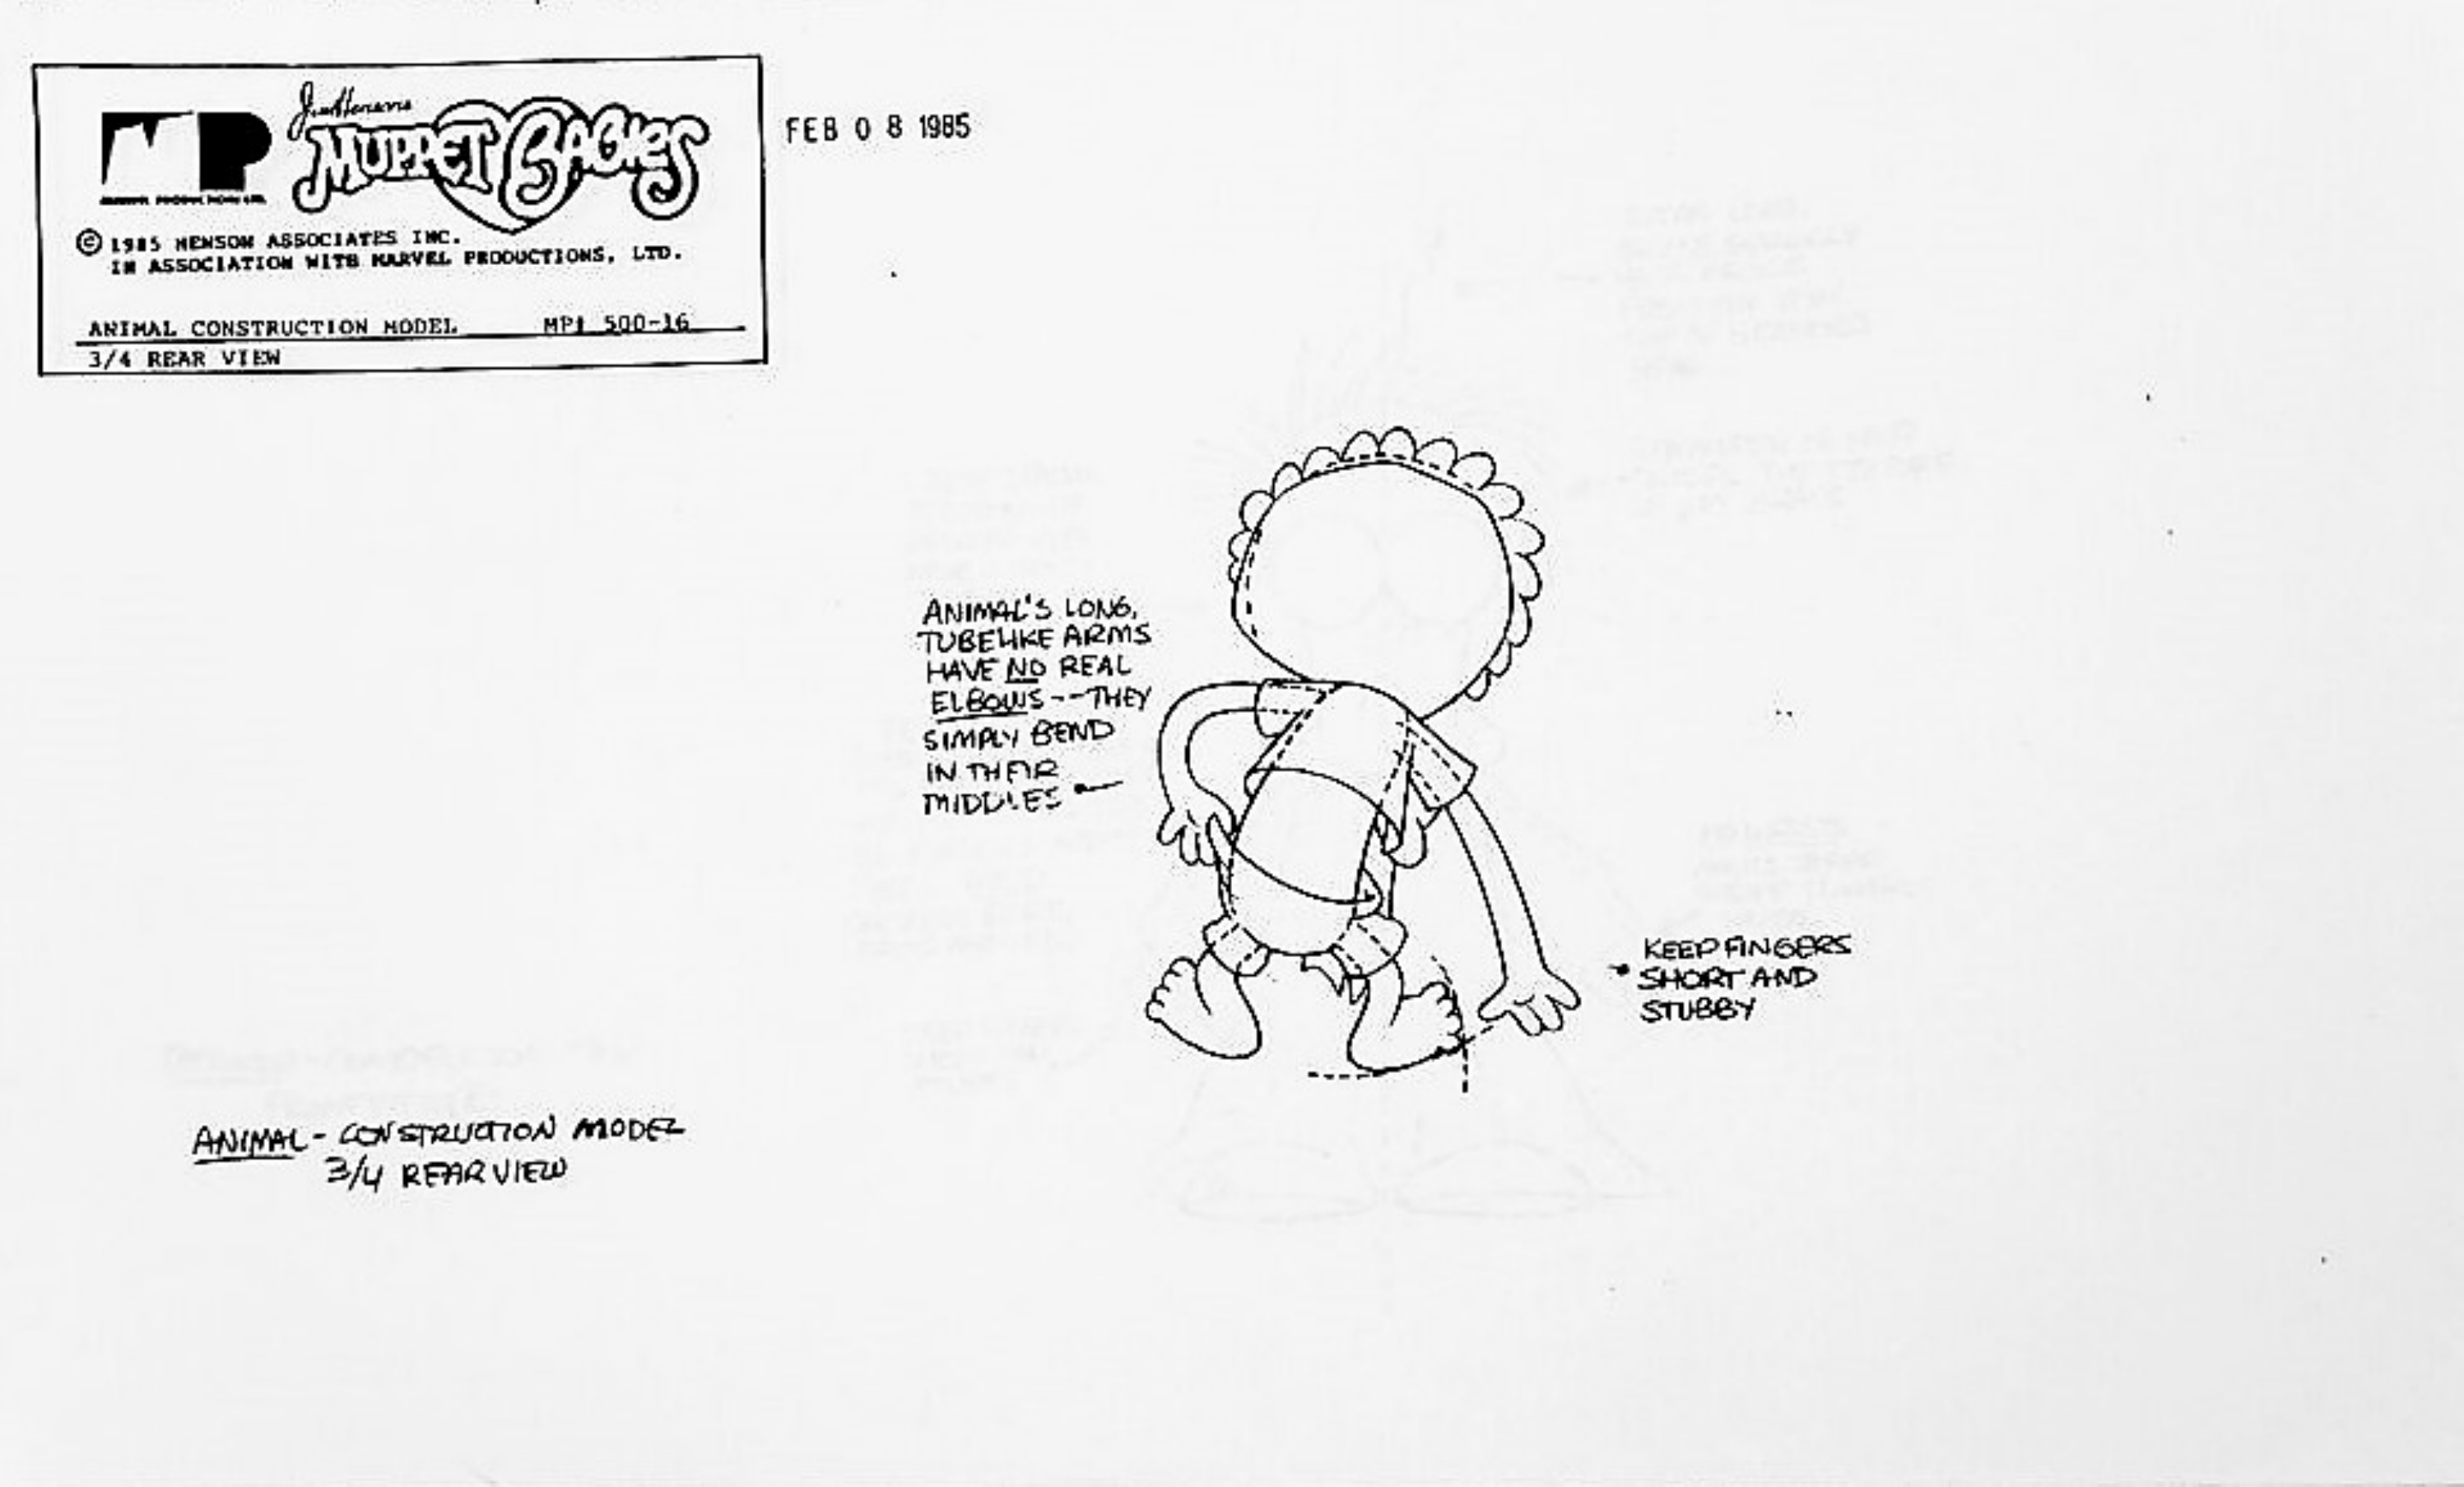 Jim Henson's
MUPPET BABIES
FEB 08 1985
MP
© 1985 HENSON ASSOCIATES INC.
IN ASSOCIATION WITH MARVEL PRODUCTIONS, LTD.
ANIMAL CONSTRUCTION MODEL MP# 500-16
3/4 REAR VIEW
ANIMAL'S LONG,
TUBELIKE ARMS
HAVE NO REAL
ELBOWS--THEY
SIMPLY BEND
IN THEIR
MIDDLES
KEEP FINGERS
SHORT AND
STUBBY
ANIMAL - CONSTRUCTION MODEL
3/4 REAR VIEW